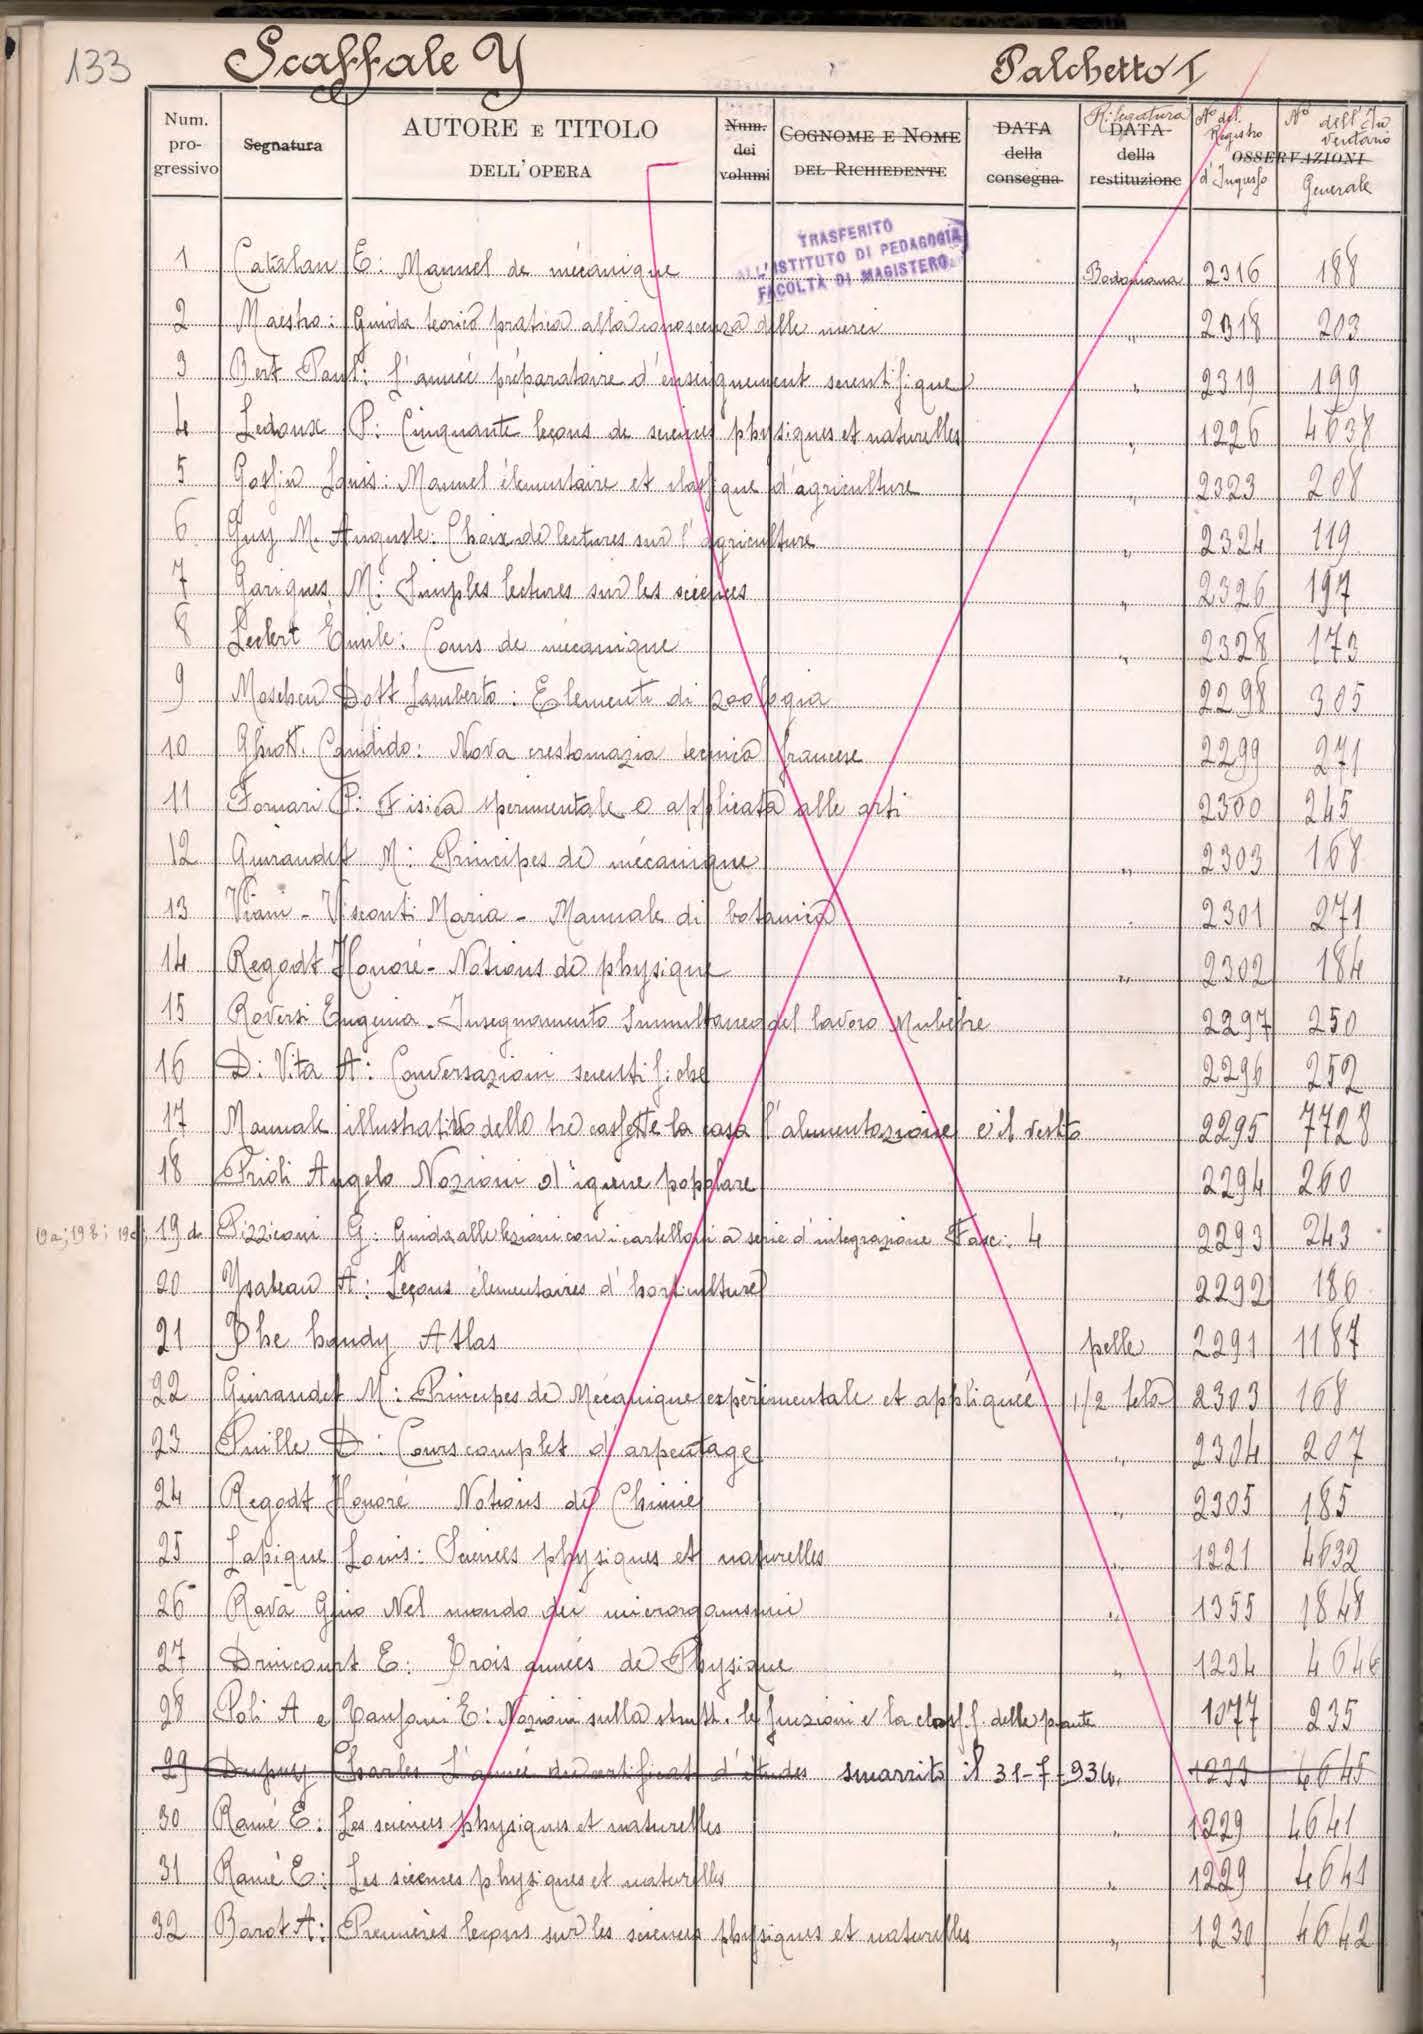 133 Scaffale Y Palchetto I
Num. progressivo Segnatura AUTORE E TITOLO DELL'OPERA Num. dei volumi COGNOME E NOME DEL RICHIEDENTE DATA della consegna Rilegatura DATA della restituzione No del Registro d'Ingresso OSSERVAZIONI No dell'Inventario Generale
TRASFERITO
ALL'ISTITUTO DI PEDAGOGIA
FACOLTÀ DI MAGISTERO
1 Catalan E: Manuel de mécanique Bodoniana 2316 188
2 Maestro: Guida teorico pratica alla conoscenza delle merci " 2318 203
3 Bert Paul: L'année préparatoire d'enseignement scientifique " 2319 199
4 Ledoux P: Cinquante leçons de sciences physiques et naturelles " 1226 4638
5 Gossin Louis: Manuel élementaire et classique d'agriculture " 2323 208
6 Guy M. Auguste: Choix de lectures sur l'agriculture " 2324 119
7 Garigues M: Simples lectures sur les sciences " 2326 197
8 Leclert Emile: Cours de mécanique " 2328 173
9 Moschen Dott Lamberto: Elementi di zoologia 2298 305
10 Ghiott. Candido: Nova crestomazia tecnica francese 2299 271
11 Fornari P: Fisica sperimentale e applicata alle arti 2300 245
12 Guiraudet M: Principes de mécanique " 2303 168
13 Viani - Visconti Maria - Manuale di botanica 2301 271
14 Regodt Honoré - Notions de physique " 2302 184
15 Roversi Eugenia - Insegnamento Simultaneo del lavoro Muliebre 2297 250
16 Di Vita A: Conversazioni scientifiche 2296 252
17 Manuale illustrativo delle tre cassette la casa l'alimentazione e il vestito 2295 7728
18 Prioli Angelo Nozioni d'igiene popolare 2294 260
19a; 19b; 19c; 19d Pizziconi G: Guida alle lezioni con i cartelloni a serie d'integrazione Fasc: 4 2293 243
20 Ysabeau A: Leçons élementaires d'horticulture 2292 186
21 The handy Atlas pelle 2291 1187
22 Guiraudet M: Principes de Mécanique expèrimentale et appliqueé 1/2 tela 2303 168
23 Puille D: Cours complet d'arpentage " 2304 207
24 Regodt Honoré Notions de Chimie " 2305 185
25 Lapique Louis: Sciences physiques et naturelles " 1221 4632
26 Ravà Gino Nel mondo dei microrganismi " 1355 1848
27 Drincourt E: Trois années de Physique " 1234 4646
28 Poli A e Tanfani E: Nozioni sulla strutt. le funzioni e la classif. delle piante 1077 235
29 Dupuy Charles L'année du certificat d'études smarrito il 31-7-934. 1233 4645
30 Ramé E: Les sciences physiques et naturelles " 1229 4641
31 Ramé E: Les sciences physiques et naturelles " 1229 4641
32 Barot A: Premières leçons sur les sciences physiques et naturelles " 1230 4642